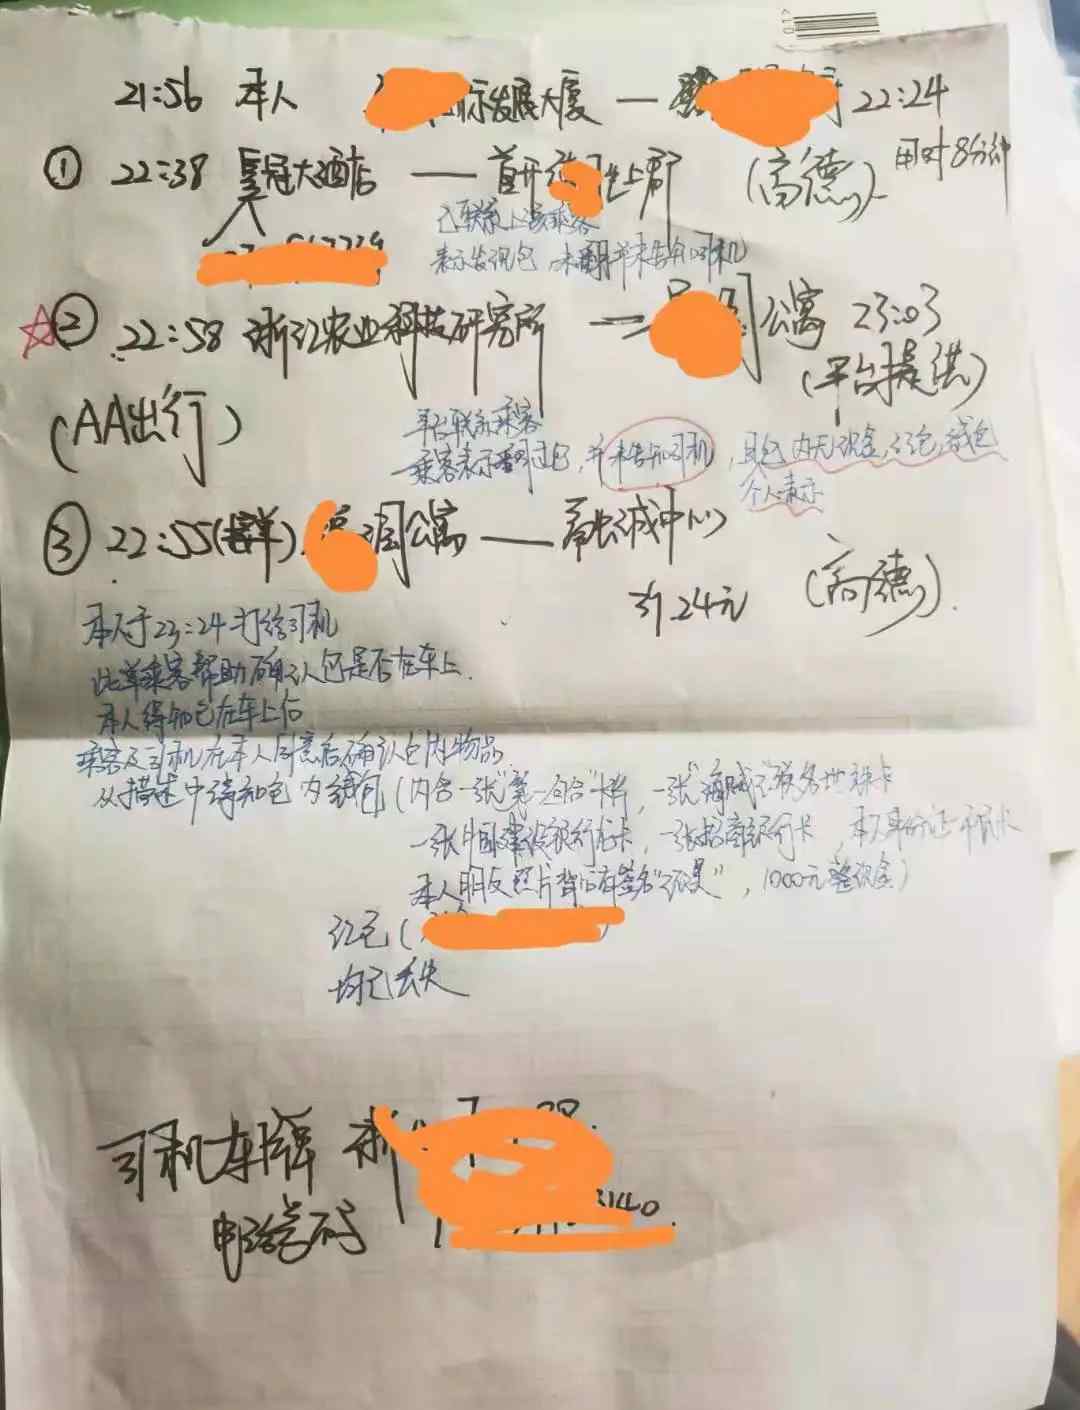 21:56 本人 际发展大厦 — 22:24
① 22:38 皇冠大酒店 — 首开 上郡 (高德) 用时8分钟
已联系上该乘客
表示发现包,未翻并未告知司机
☆② 22:58 浙江农业科技研究所 — 公寓 23:03
(AA出行) (平台提供)
平台联系乘客
乘客表示看到过包,并未告知司机,且包内无现金,红包,钱包
个人表示
③ 22:55(接单) 公寓 — 融诚中心
24元 (高德)
本人于23:24打给司机
此单乘客帮助确认包是否在车上.
本人得知包在车上后
乘客及司机在本人同意后确认包内物品
从描述中得知包内钱包(内含一张"第一句合"卡,一张"海贼王"卡
一张中国建设银行卡,一张招商银行卡,本人身份证
本人朋友照片背后有签名,1000元整现金)
红包(
均已丢失
司机车牌 浙
电话号码 3140